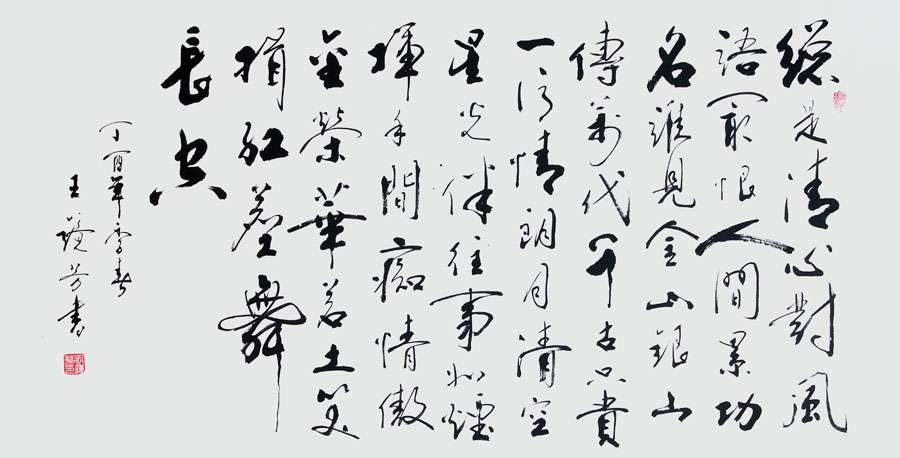 總是清心對風
語最恨人間累功
名誰見金山銀山
傳萬代千古只貴
一片情朗月清空
星光伴往事如煙
揮手間痴情傲
金榮華若土笑
捐紅塵舞
長空
丁酉年季春
王芳書